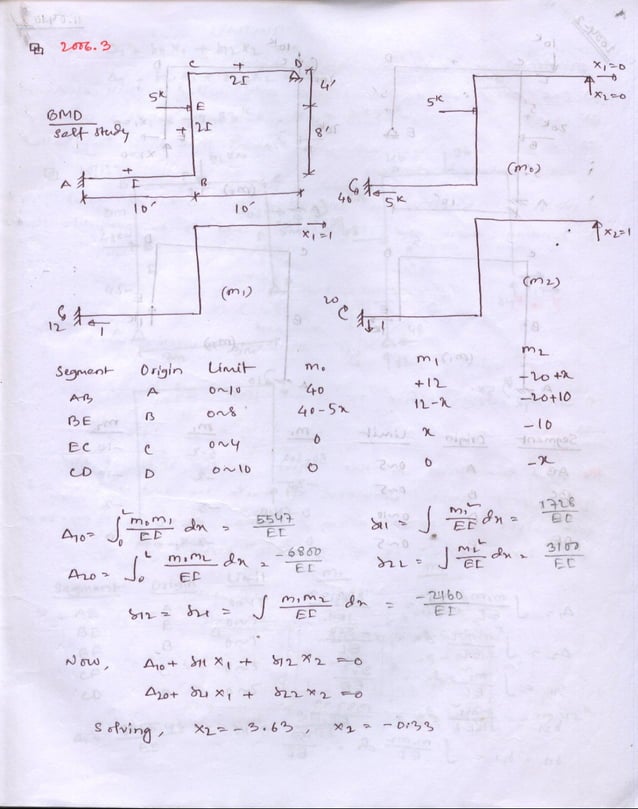 2006.3
C + D
2I
4'
5k E
+ 2I
8'
BMD
self study
A + I B
10' 10'
x₁=0
x₂=0
5k
(m₀)
40 5k
x₁=1
(m₁)
12 1
x₂=1
(m₂)
20 1
Segment Origin Limit m₀ m₁ m₂
AB A 0~10 40 +12 -20+x
BE B 0~8 40-5x 12-x -20+10
EC C 0~4 0 x -10
CD D 0~10 0 0 -x
Δ10 = ∫₀ᴸ m₀m₁/EI dx = 5547/EI δ11 = ∫ m₁²/EI dx = 1728/EI
Δ20 = ∫₀ᴸ m₀m₂/EI dx = -6800/EI δ22 = ∫ m₂²/EI dx = 3100/EI
δ12 = δ21 = ∫ m₁m₂/EI dx = -2460/EI
Now, Δ10 + δ11 x₁ + δ12 x₂ = 0
Δ20 + δ21 x₁ + δ22 x₂ = 0
Solving, x₂ = -3.63, x₂ = -0.33